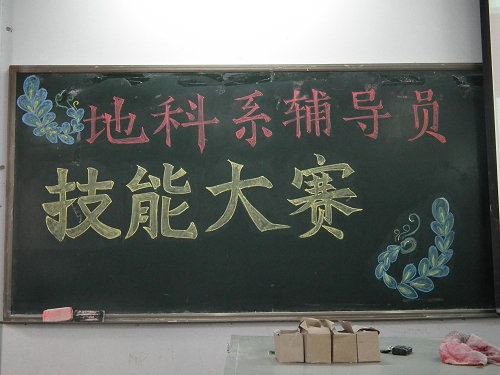 地科系辅导员
技能大赛